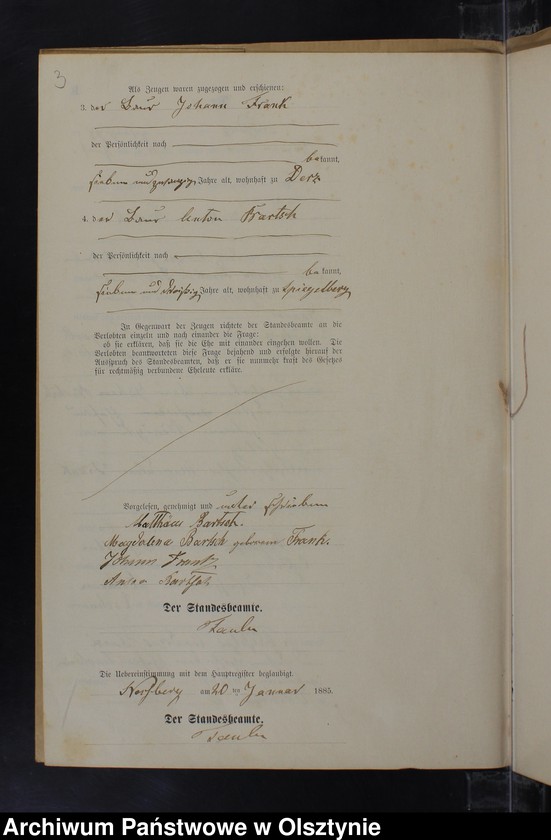 3
Als Zeugen waren zugezogen und erschienen:
3. der Baur Johann Frank
der Persönlichkeit nach
bekannt,
sieben und zwanzig Jahre alt, wohnhaft zu Derz
4. der Baur Anton Bartsch
der Persönlichkeit nach
bekannt,
sieben und dreißig Jahre alt, wohnhaft zu Spiegelberg
In Gegenwart der Zeugen richtete der Standesbeamte an die
Verlobten einzeln und nach einander die Frage:
ob sie erklären, daß sie die Ehe mit einander eingehen wollen. Die
Verlobten beantworteten diese Frage bejahend und erfolgte hierauf der
Ausspruch des Standesbeamten, daß er sie nunmehr kraft des Gesetzes
für rechtmäßig verbundene Eheleute erkläre.
Vorgelesen, genehmigt und unterschrieben
Matthäus Bartsch.
Magdalena Bartsch geborene Frank.
Johann Frank
Anton Bartsch
Der Standesbeamte.
Die Uebereinstimmung mit dem Hauptregister beglaubigt.
am 20 ten Januar 1885.
Der Standesbeamte.
Archiwum Państwowe w Olsztynie